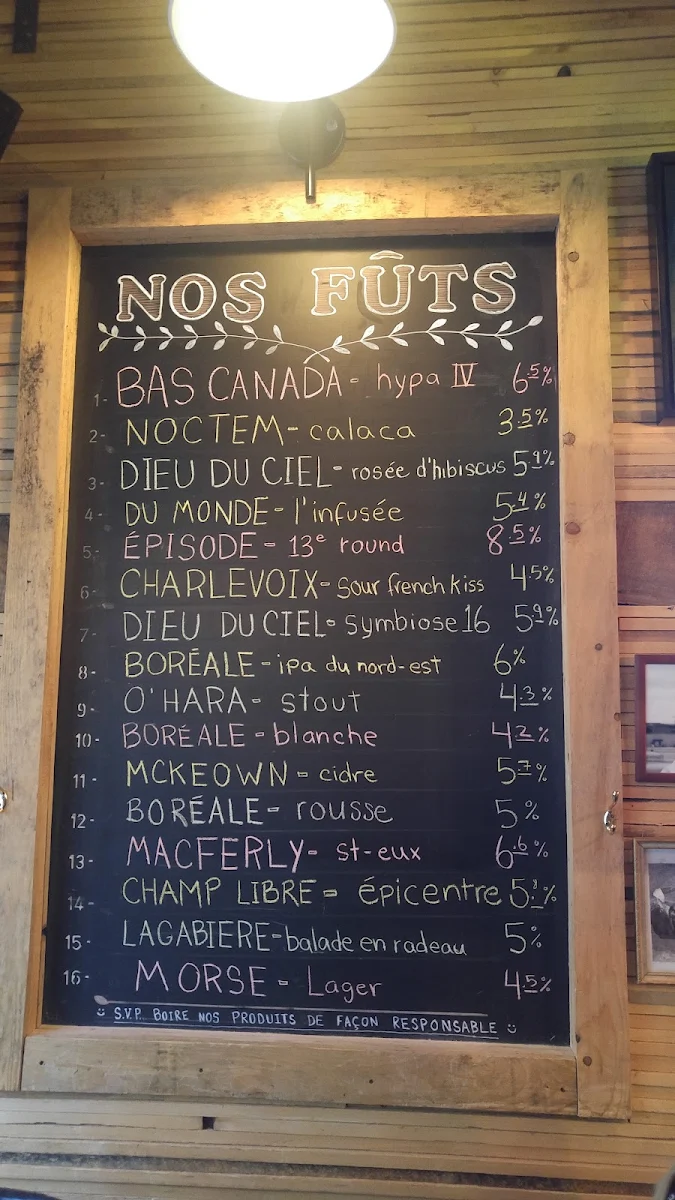 NOS FÛTS
1- BAS CANADA- hypa IV 6.5%
2- NOCTEM- calaca 3.5%
3- DIEU DU CIEL- rosée d'hibiscus 5.9%
4- DU MONDE- l'infusée 5.4%
5- ÉPISODE- 13e round 8.5%
6- CHARLEVOIX- Sour french kiss 4.5%
7- DIEU DU CIEL- Symbiose 16 5.9%
8- BORÉALE- ipa du nord-est 6%
9- O'HARA- stout 4.3%
10- BORÉALE- blanche 4.2%
11- MCKEOWN- cidre 5.7%
12- BORÉALE- rousse 5%
13- MACFERLY- st-eux 6.6%
14- CHAMP LIBRE- épicentre
15- LAGABIERE- balade en radeau 5%
16- MORSE- Lager 4.5%
S.V.P. BOIRE NOS PRODUITS DE FAÇON RESPONSABLE